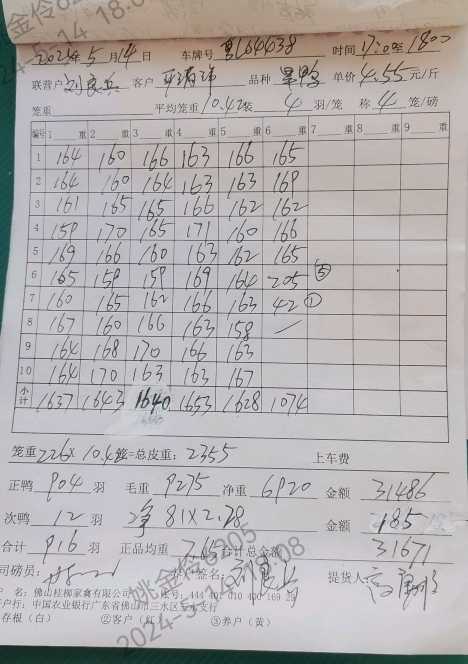 2024年5月14日 车牌号 时间 17:20至1800
联营户 客户 品种 单价4.55元/斤
笼重 平均笼重10.42 4羽/笼 称4笼/磅
编号 1 重 2 重 3 重 4 重 5 重 6 重 7 重 8 重 9 重
1 164 160 166 163 166 165
2 164 160 164 163 163 169
3 161 165 165 166 162 162
4 159 170 165 171 160 166
5 169 166 160 163 162 165
6 165 159 159 169 164 205 ⑤
7 160 165 162 166 163 42 ①
8 167 160 166 163 158 —
9 164 168 170 166 163
10 164 170 163 163 167
小计 1637 1643 1640 1653 1628 1074
笼重226×10.42=总皮重:2355 上车费
正鸭904羽 毛重9275 净重6920 金额31486
次鸭12羽 净81×2.28 金额185
合计916羽 正品均重7.65 合计总金额31671
司磅员: 签名: 提货人:
户名:佛山桂柳家禽有限公司
户行:中国农业银行广东省佛山市三水区
存根(白) ②客户(红) ③养户(黄)
姚金伶6205
2024-5-14 18:08